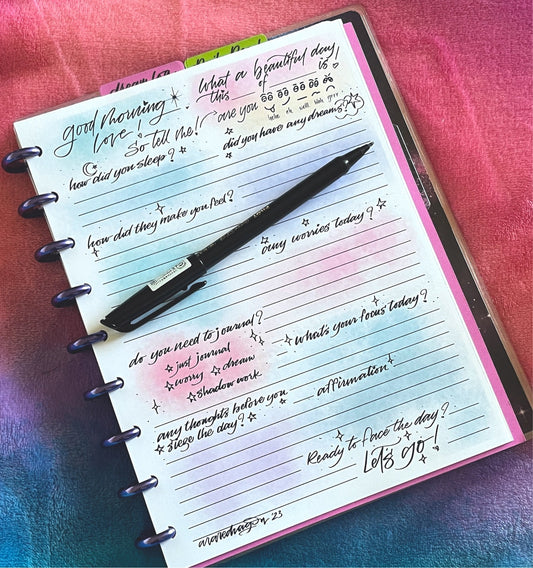 dream log
good morning love!
What a beautiful day
this ____ of ____ is!
So tell me!
are you
hehe eh well
how did you sleep?
did you have any dreams?
how did they make you feel?
any worries today?
do you need to journal?
just journal
worry dream
shadow work
what's your focus today?
any thoughts before you
siege the day?
affirmation
Ready to face the day?
Let's go!
'23